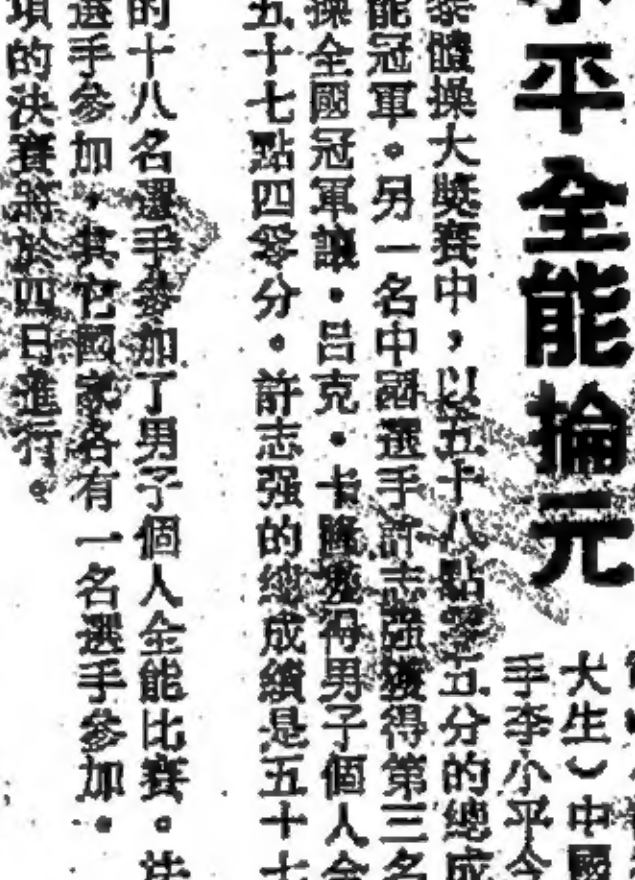 小平全能掄元
大生）中國
手李小平今
泰體操大獎賽中，以五十八點零五分的總成
能冠軍。另一名中國選手許志强獲得第三名
操全國冠軍讓・呂克・卡 獲得男子個人全
五十七點四零分。許志强的總成績是五十七
的十八名選手參加了男子個人全能比賽。法
選手參加，其它國家各有一名選手參加。
項的決賽將於四日進行。